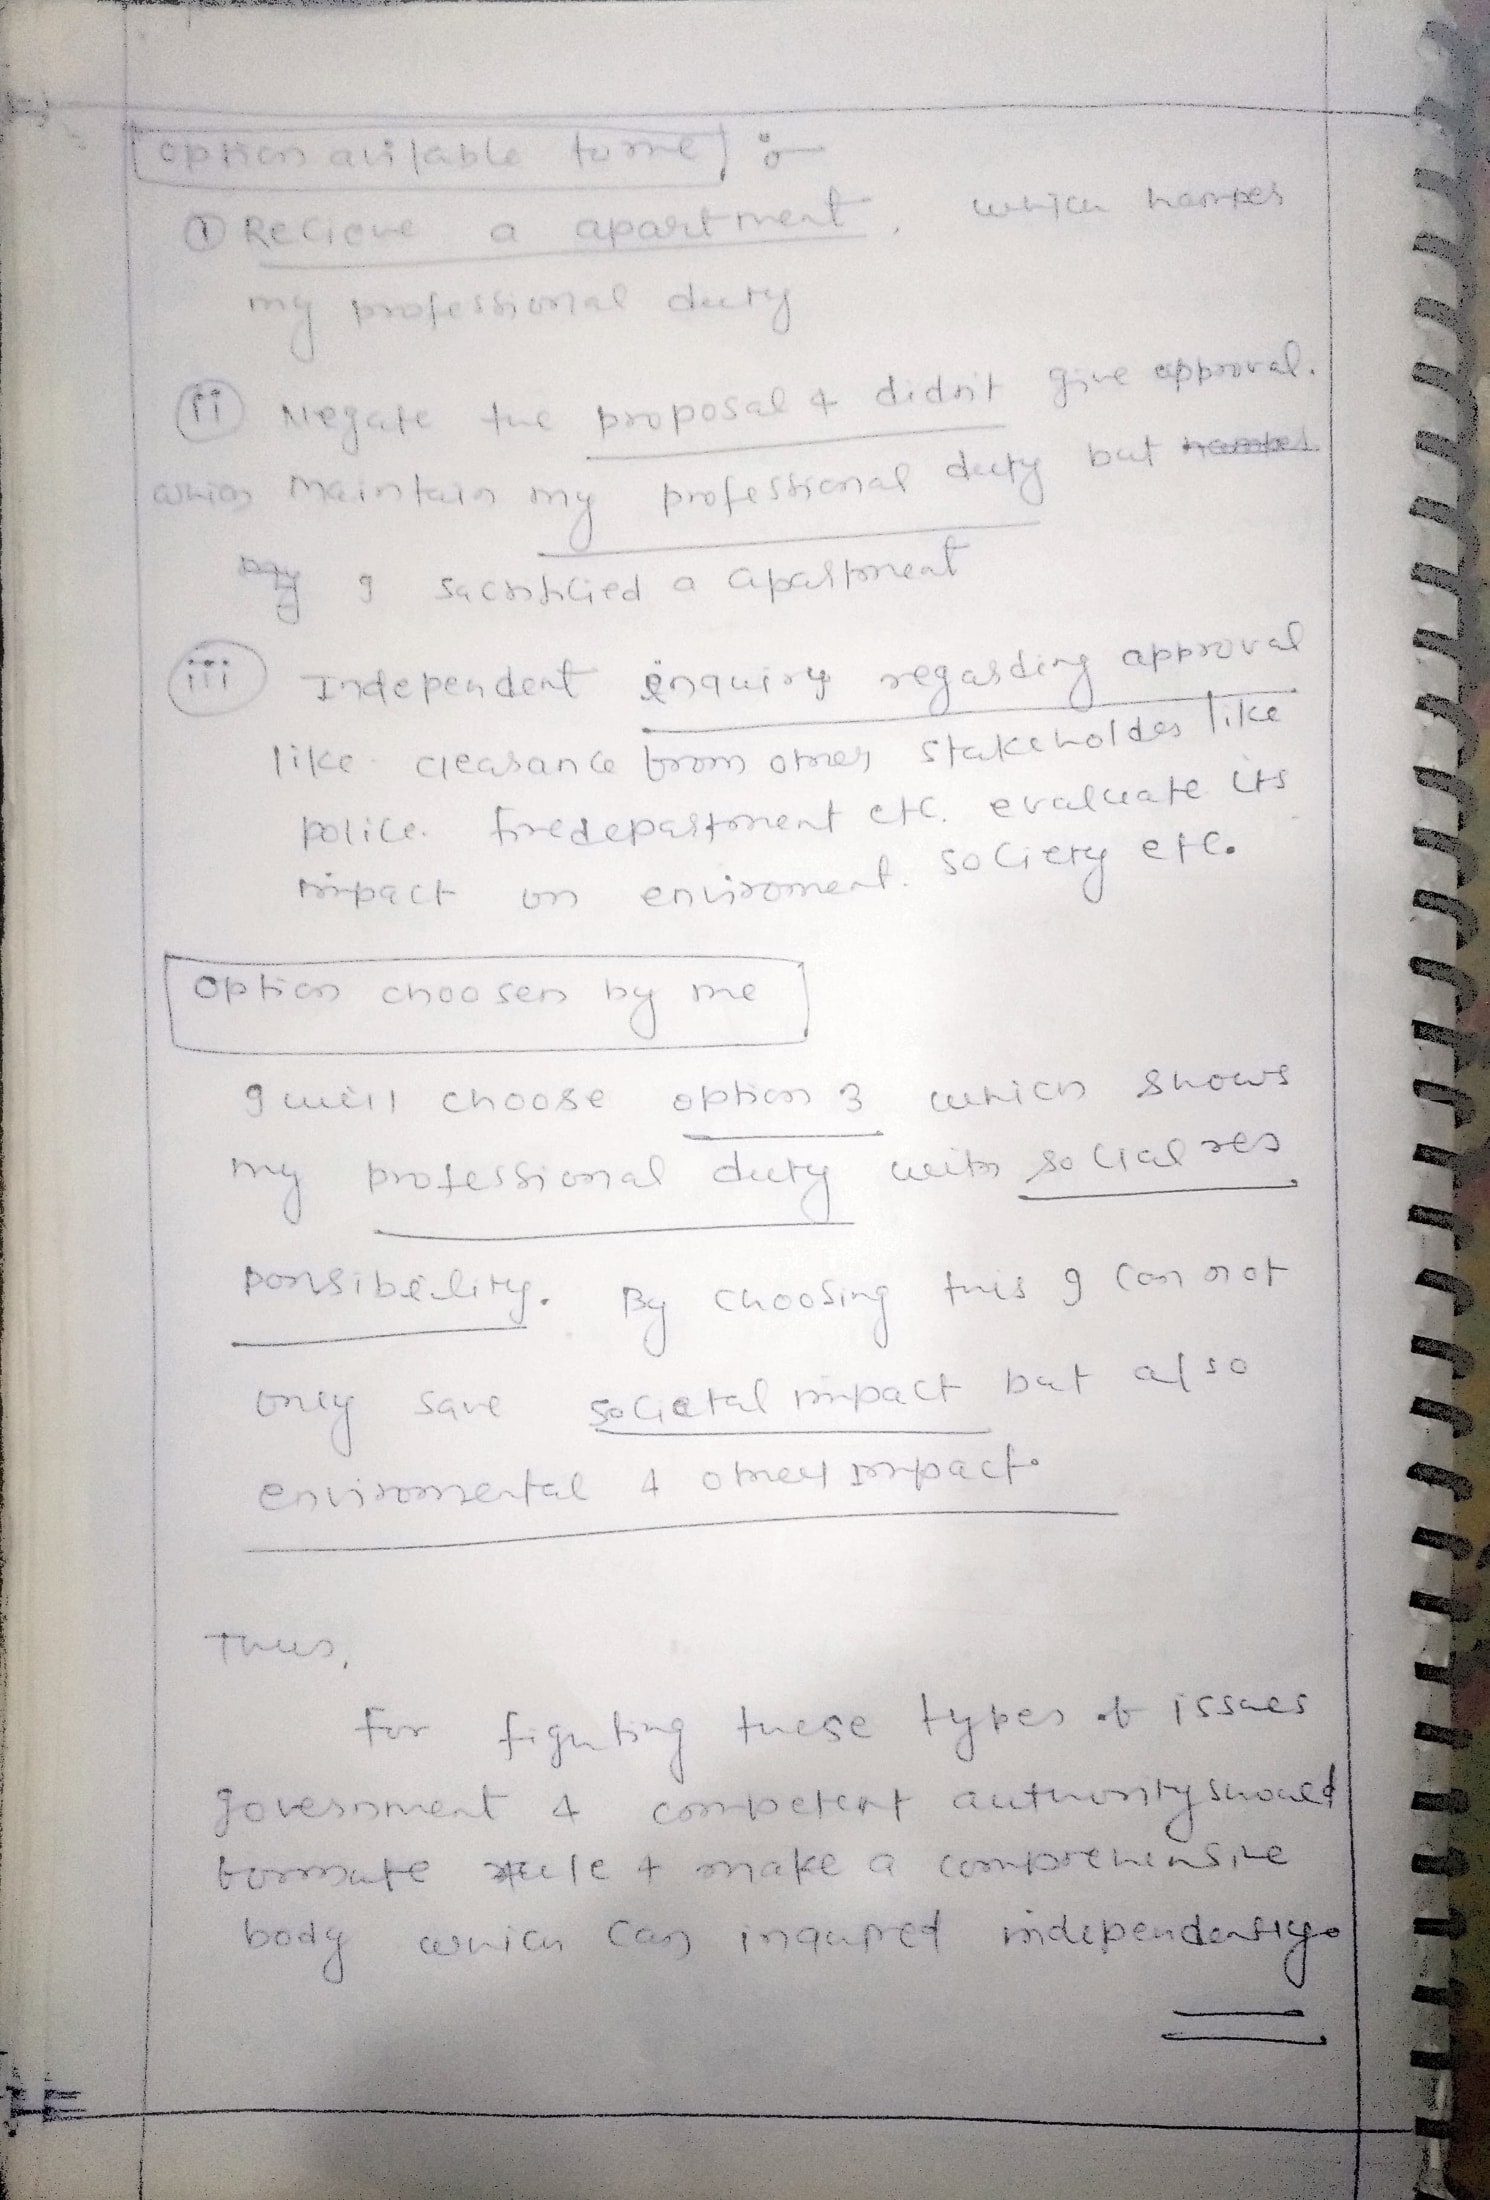 Option avilable to me :-
① Recieve a apartment, which hampes
my professional duty
(ii) Negate the proposal & didn't give approval.
which maintain my professional duty but
I sacrificied a apartment
(iii) Independent enquiry regarding approval
like clearance from other stakeholdes like
police. firedepartment etc. evaluate its
impact on enviroment. society etc.
Option choosen by me
I will choose option 3 which shows
my professional duty with social res
ponsibility. By choosing this I can not
only save societal impact but also
enviromental & other impact.
Thus,
For fighting these types of issues
government & competent authority should
formate rule & make a comprehensive
body which can inquired independently.